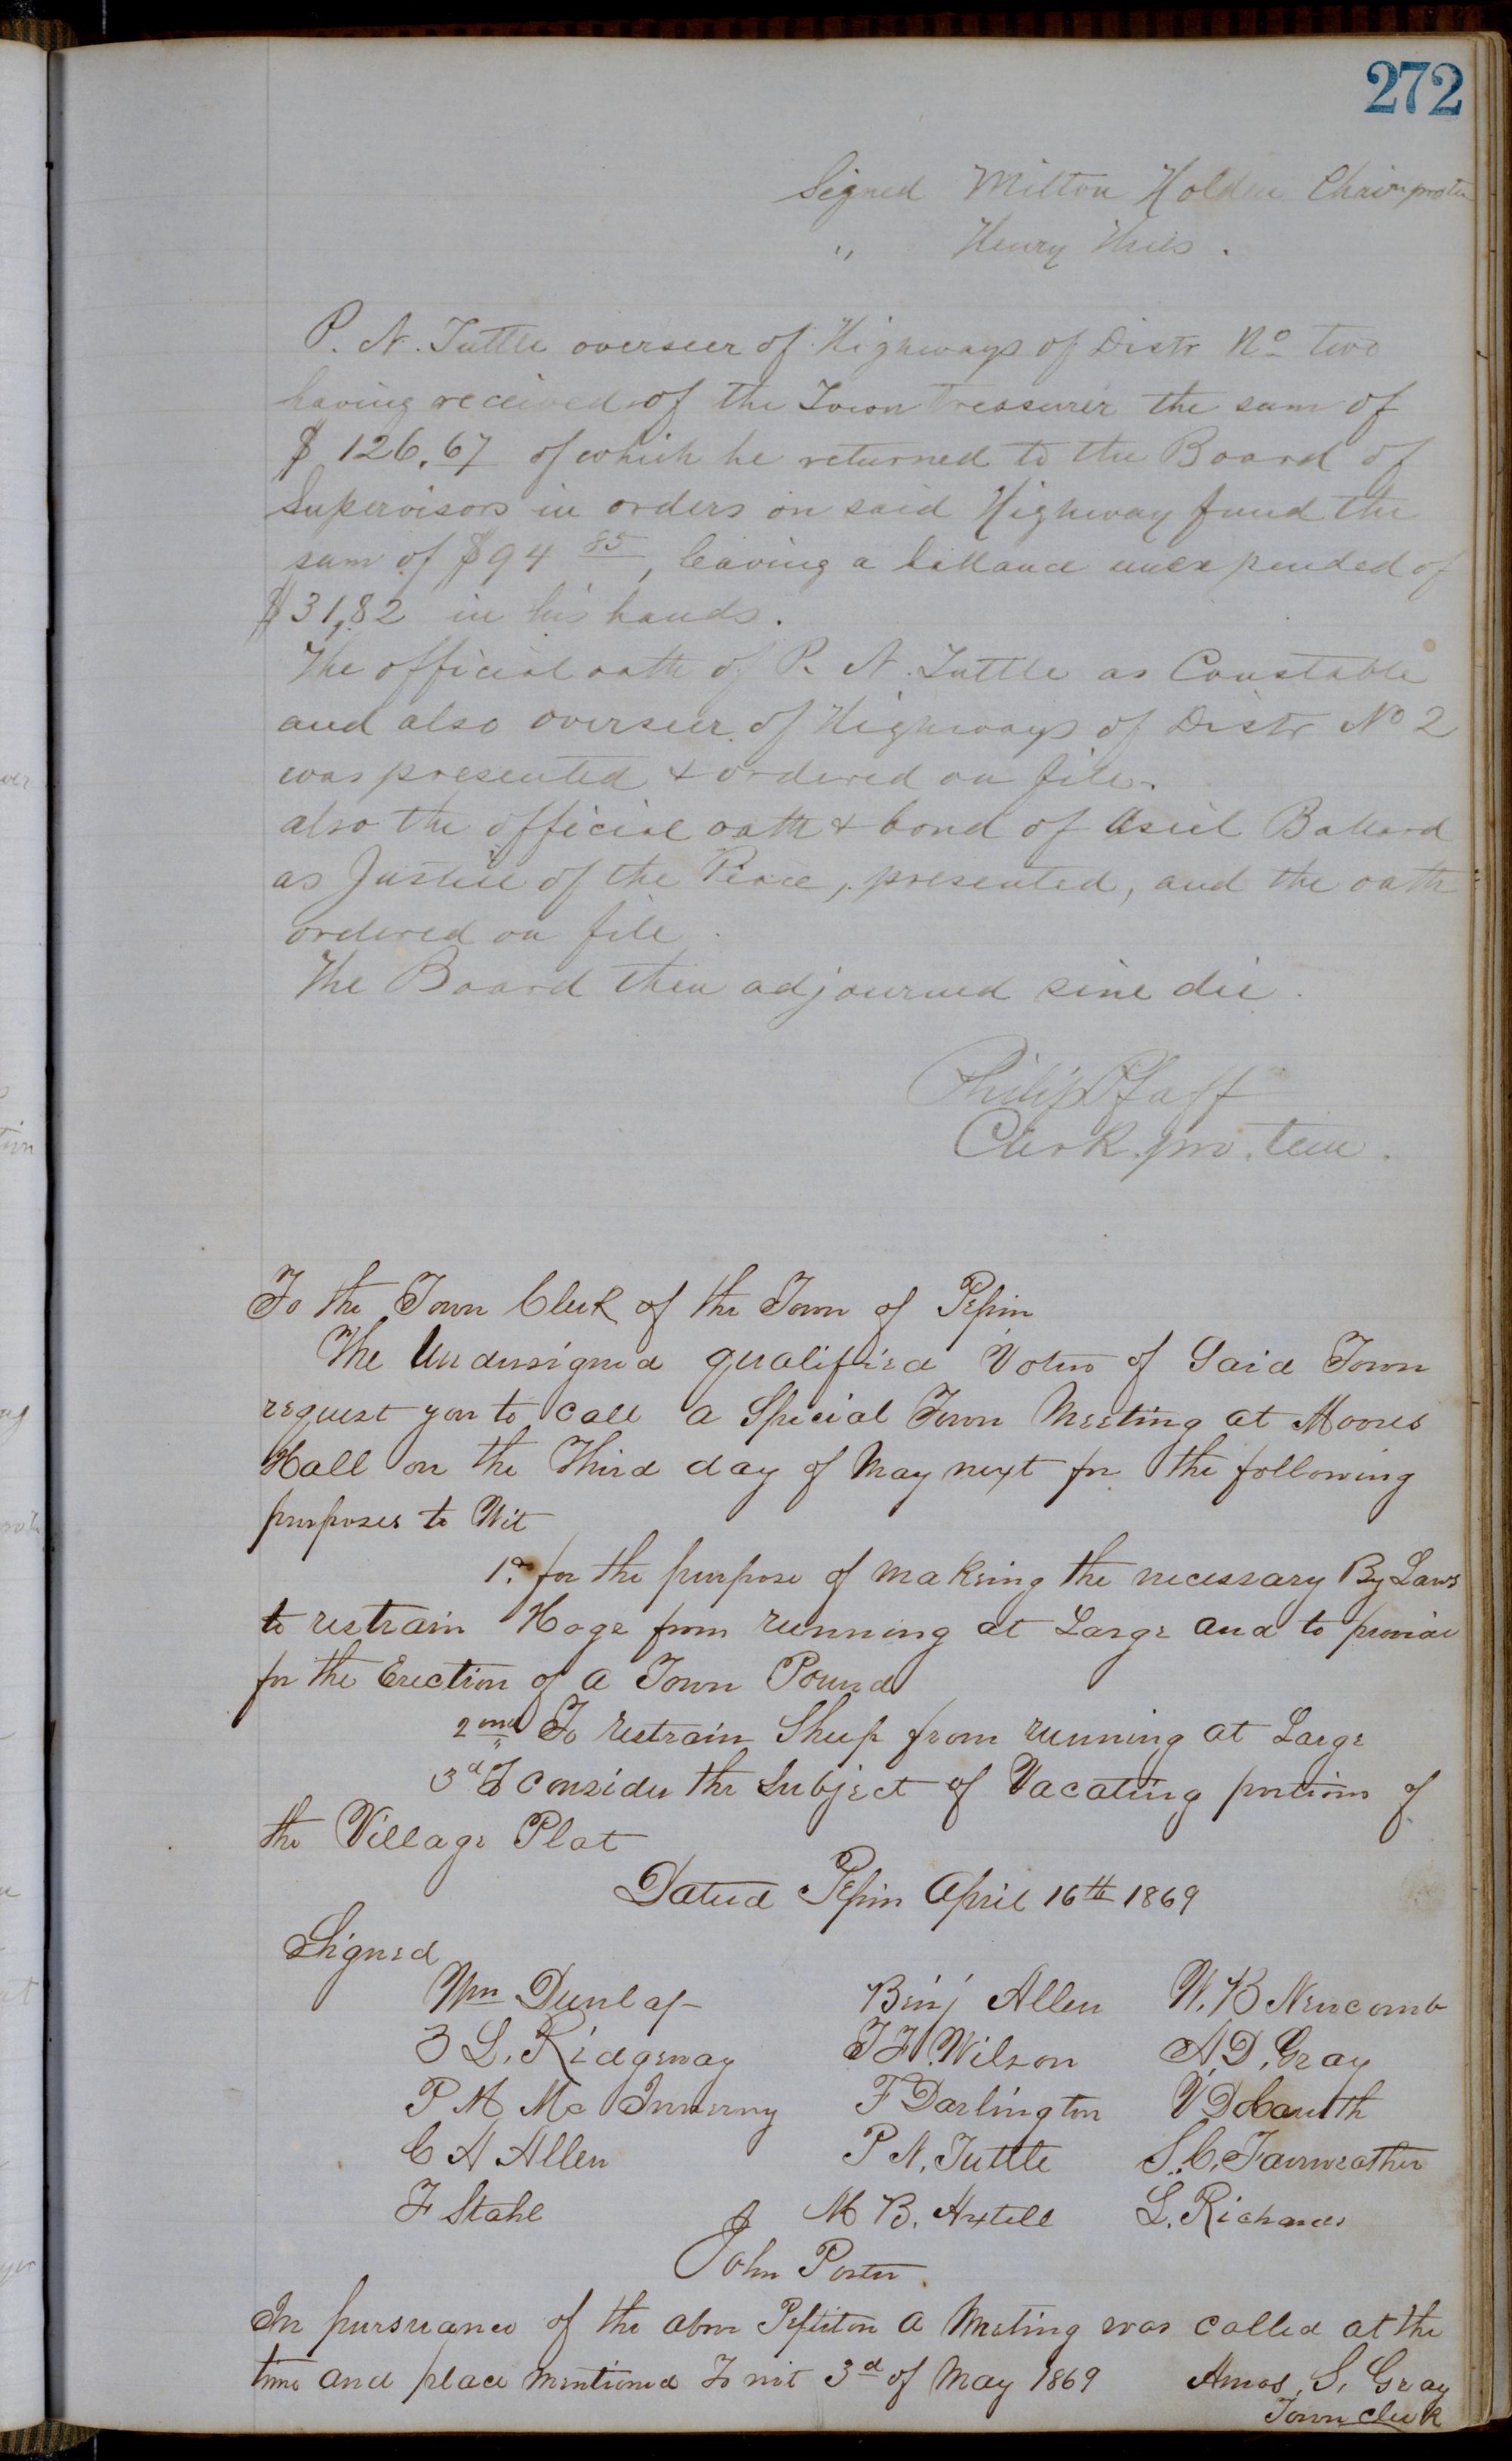 272
Signed Milton Holden Chairn protem
" Henry Thies.
P. N. Tuttle overseer of Highways of Distr No two
having received of the Town treasurer the sum of
$ 126.67 of which he returned to the Board of
Supervisors in orders on said Highway fund the
sum of $94 85, leaving a ballance unexpended of
$31,82 in his hands.
The official oath of P. N. Tuttle as Constable
and also overseer of Highways of Distr No 2
was presented & ordered on file.
also the official oath & bond of Asiel Ballard
as Justice of the Peace, presented, and the oath
ordered on file.
The Board then adjourned sine die.
Philip Pfaff
Clerk pro. tem.
To the Town Clerk of the Town of Pepin
The Undersigned qualified Voters of Said Town
request you to call a Special Town Meeting at Moores
Hall on the Third day of May next for the following
purposes to Wit
1st for the purpose of makeing the necessary By Laws
to restrain Hogs from running at Large and to provide
for the Erection of a Town Pound
2nd To restrain Sheep from running at Large
3d To consider the Subject of Vacating portions of
the Village Plat
Dated Pepin April 16th 1869
Signed
Wm Dunlap Benj Allen W. B Newcomb
L. Ridgeway T F. Wilson A. D. Gray
P. Mc F Darlington V D Carruth
C A Allen P N. Tuttle S. C. Fairweather
F Stahl M B. Axtell L. Richards
John Porter
In pursuance of the above Petition a Meeting was called at the
time and place mentioned To wit 3d of May 1869 Amos. S. Gray
Town Clerk